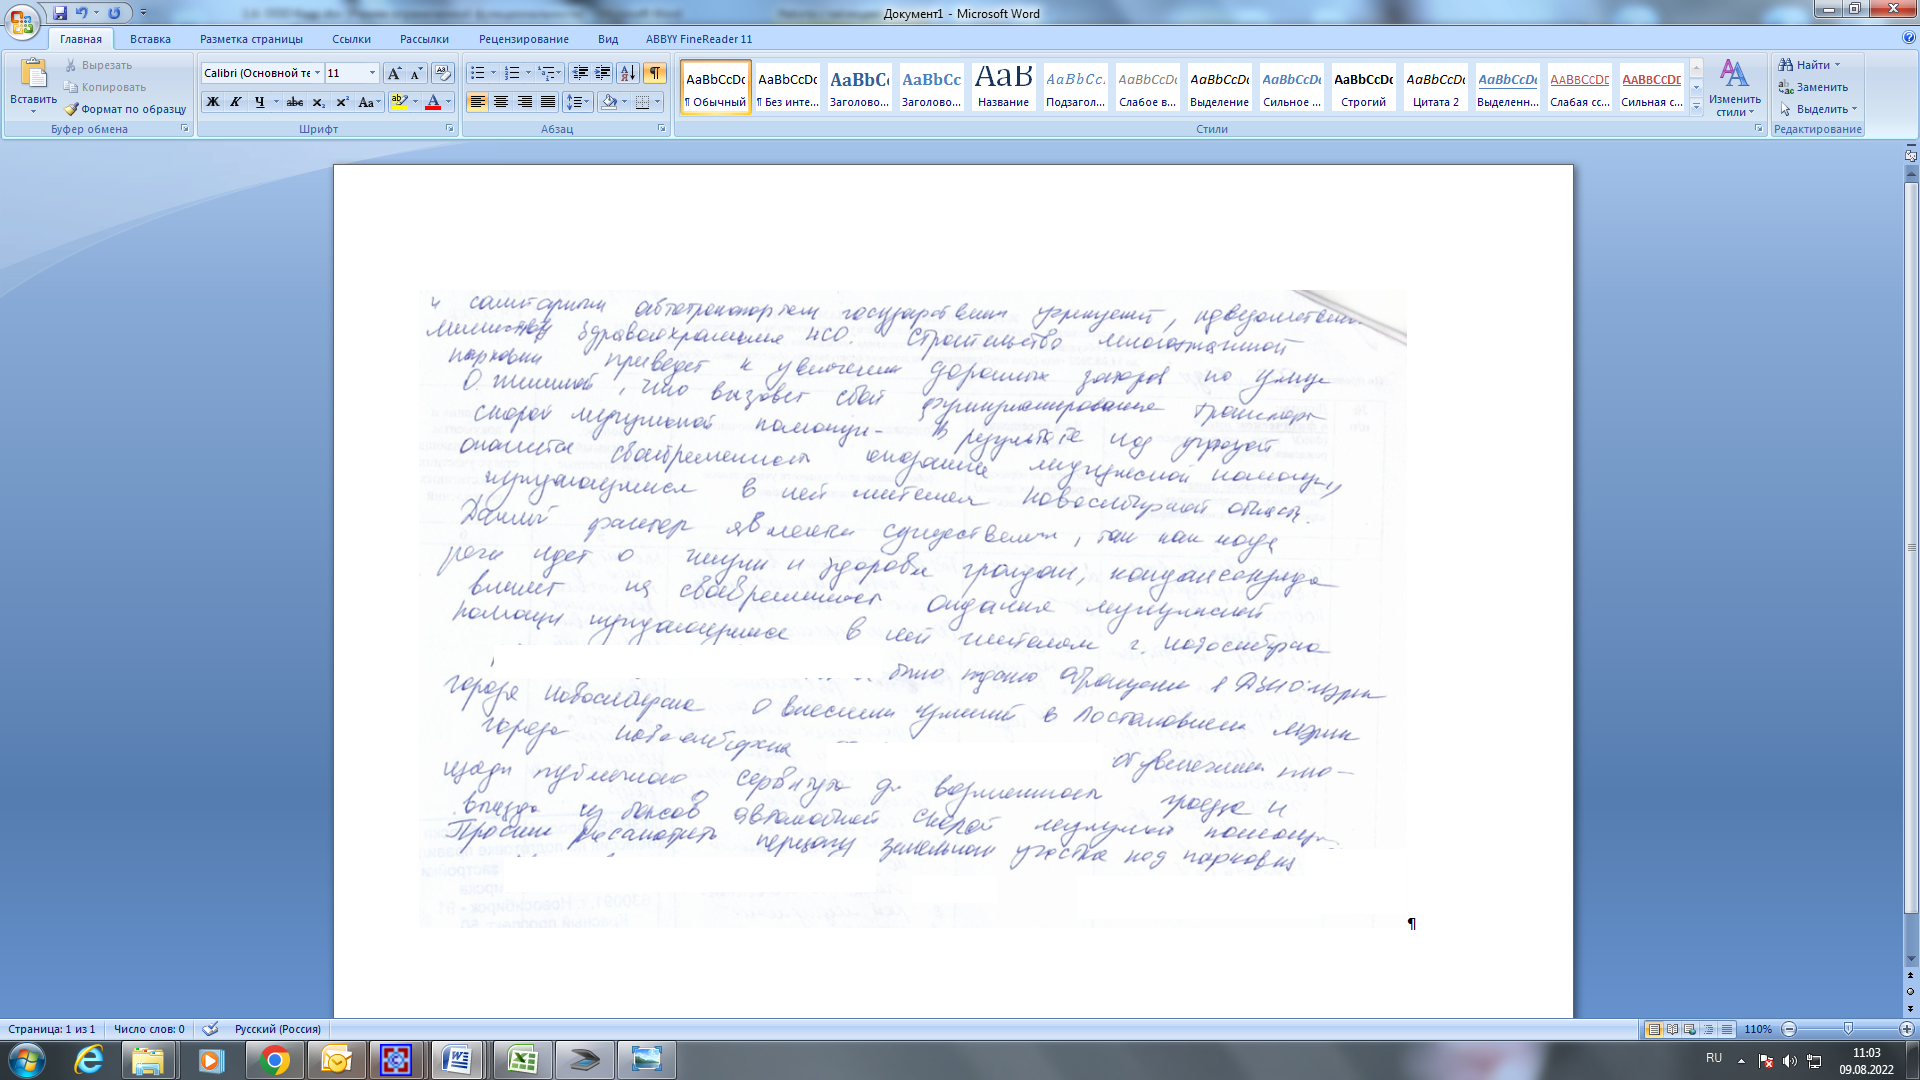 Документ1 - Microsoft Word
Главная Вставка Разметка страницы Ссылки Рассылки Рецензирование Вид ABBYY FineReader 11
Вставить
Вырезать
Копировать
Формат по образцу
Буфер обмена
Calibri (Основной те 11
Ж К Ч abc x₂ x² Aa
Шрифт
Абзац
AaBbCcDc AaBbCcDc AaBbCc AaBbCc AaB AaBbCc. AaBbCcDc AaBbCcDc AaBbCcDc AaBbCcDc AaBbCcDc AaBbCcDc AABBCCDD AABBCCDD
¶ Обычный ¶ Без инте... Заголово... Заголово... Название Подзагол... Слабое в... Выделение Сильное ... Строгий Цитата 2 Выделенн... Слабая сс... Сильная с...
Стили
Изменить стили
Найти
Заменить
Выделить
Редактирование
и санитарным автотранспортом государственн учреждений, подведомственн
министерству здравоохранения НСО. Строительство многоэтажной
парковки приведет к увеличению дорожных заторов по улице
О. Жилиной, что вызовет сбой функционирования транспорта
скорой медицинской помощи. В результате под угрозой
окажется своевременность оказания медицинской помощи,
нуждающимся в ней жителям Новосибирской области.
Данный фактор является существенным, так как когда
речь идет о жизни и здоровье граждан, каждая секунда
влияет на своевременность оказания медицинской
помощи нуждающимся в ней жителям г. Новосибирска
было подано обращение в ДЗИО мэрии
города Новосибирска о внесении изменений в Постановление мэрии
города Новосибирска
об увеличении пло-
щади публичного сервитута для возможности проезда и
выезда из боксов автомобилей скорой медицинской помощи
Просим рассмотреть передачу земельного участка под парковку
¶
Страница: 1 из 1 Число слов: 0 Русский (Россия) 110%
RU 11:03
09.08.2022